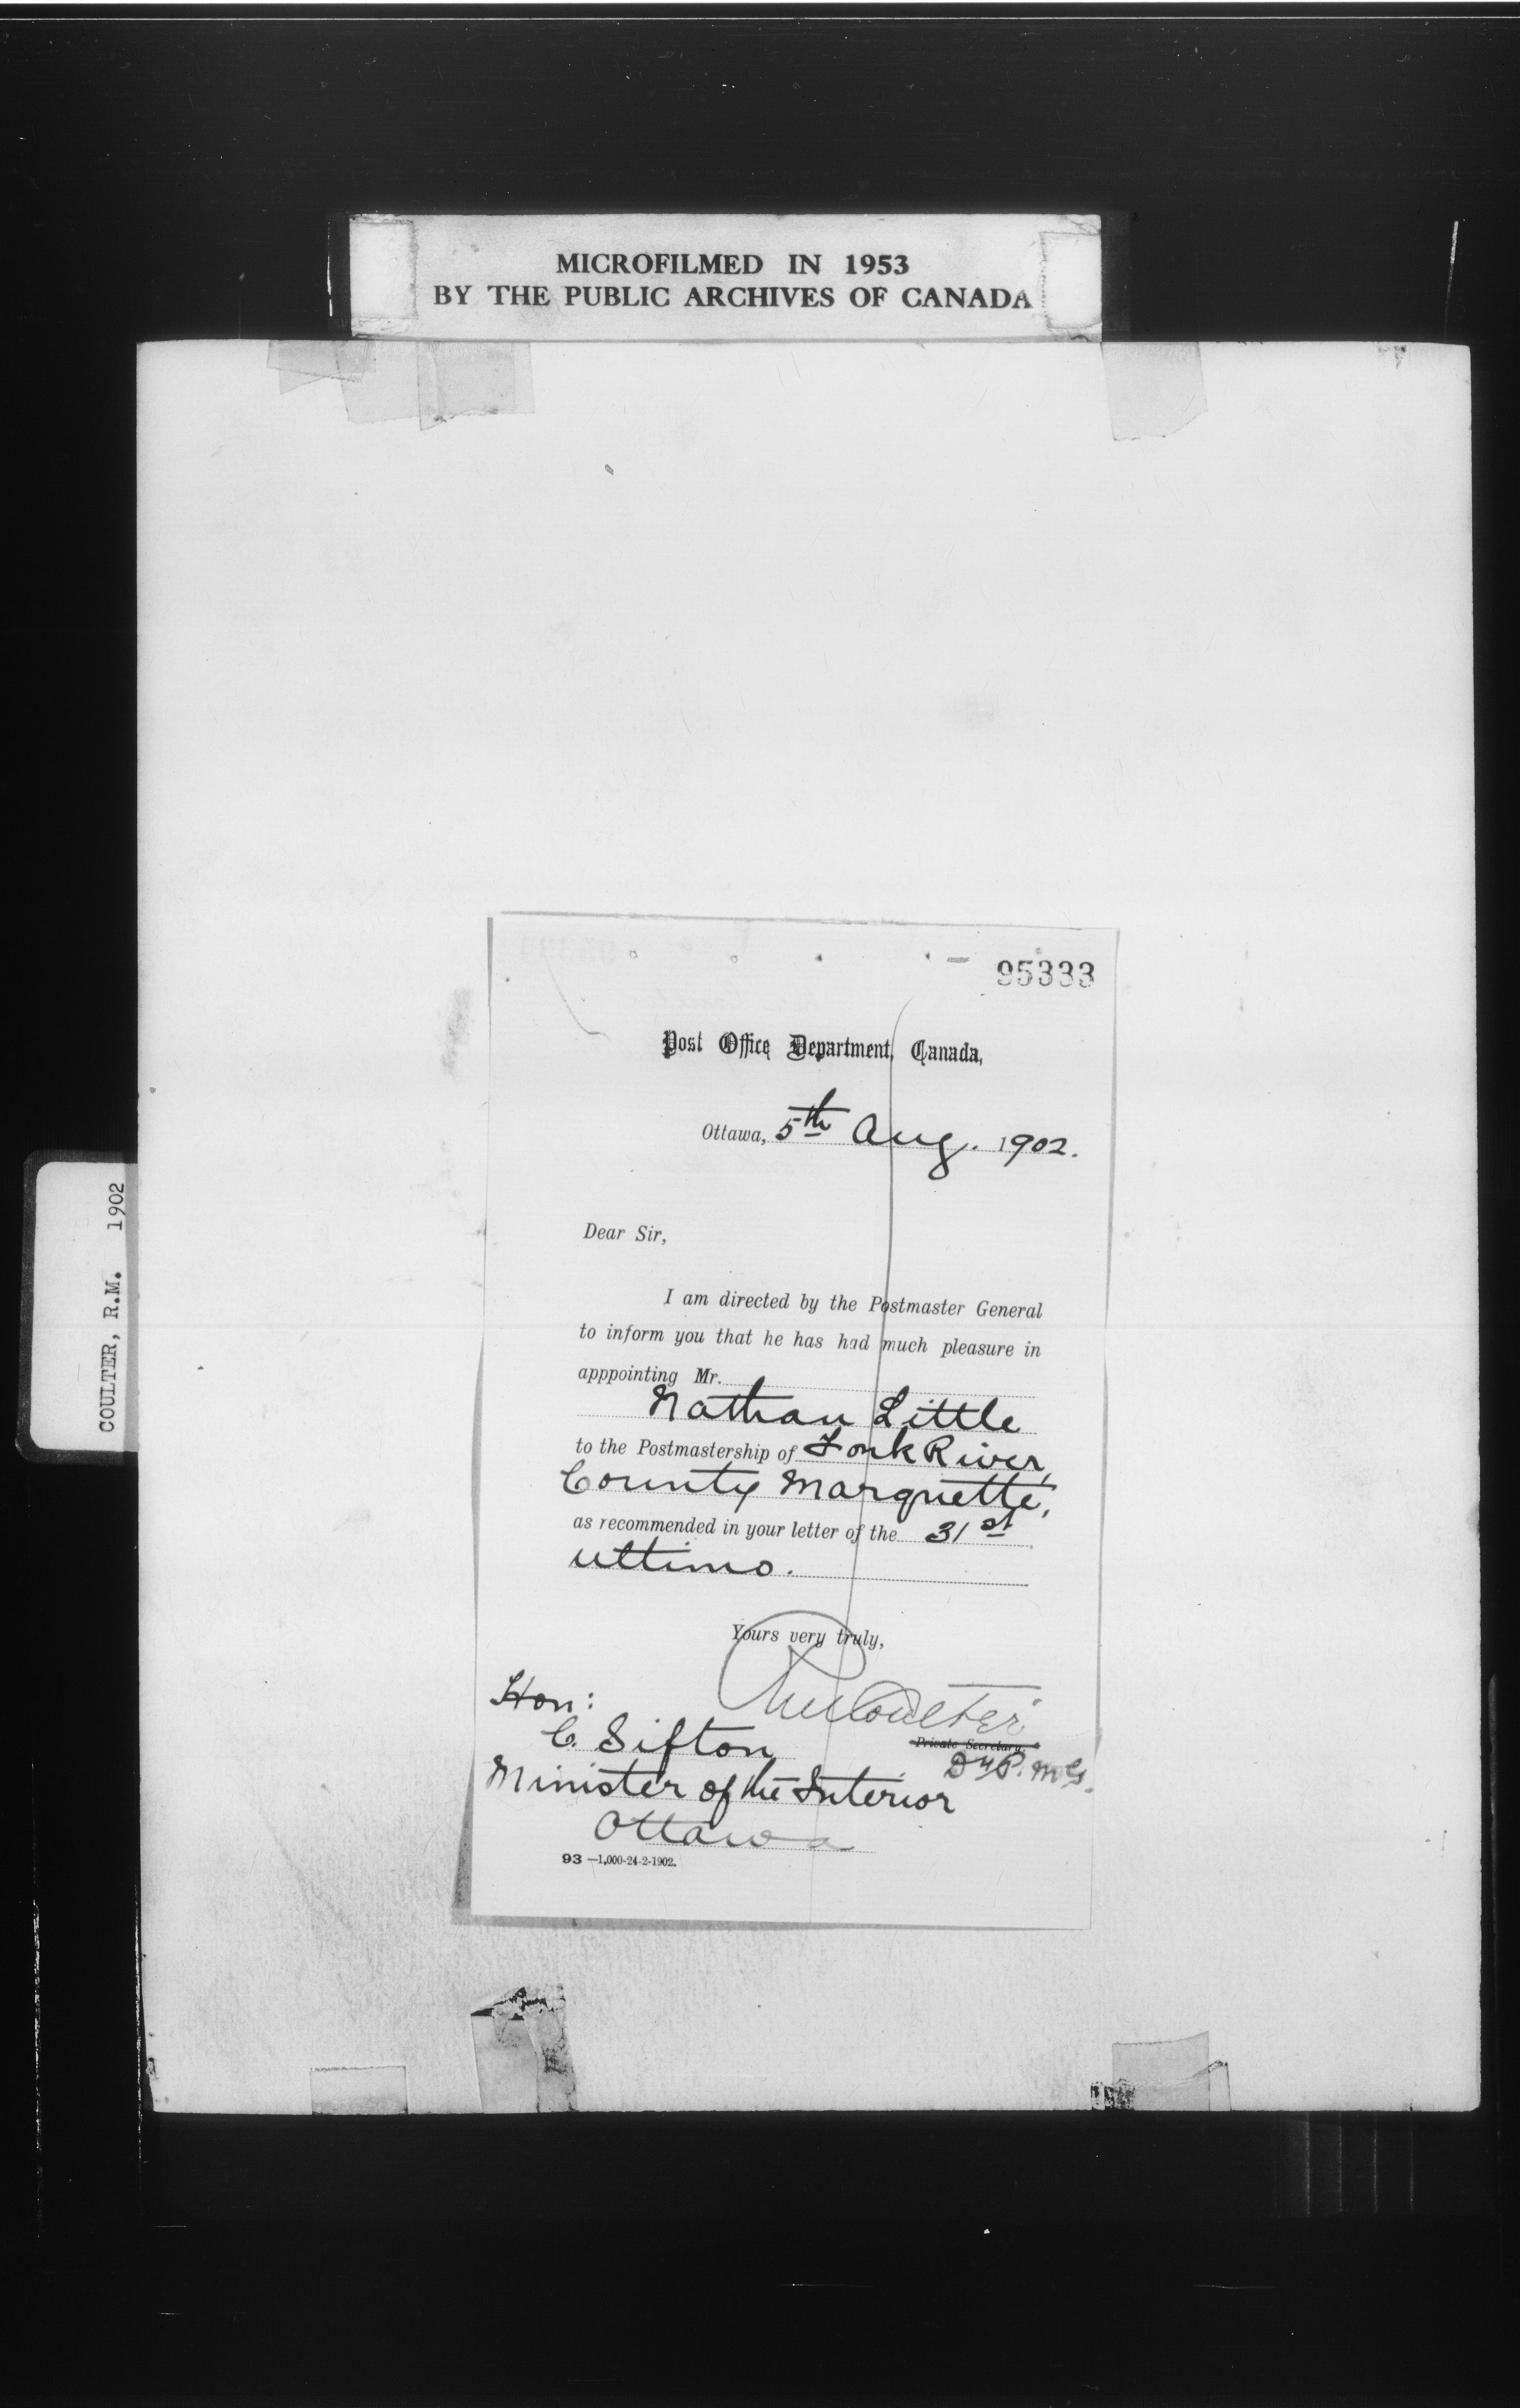 MICROFILMED IN 1953
BY THE PUBLIC ARCHIVES OF CANADA
COULTER, R.M. 1902
95333
Post Office Department, Canada,
Ottawa, 5th Aug. 1902.
Dear Sir,
I am directed by the Postmaster General
to inform you that he has had much pleasure in
apppointing Mr.
Nathan Little
to the Postmastership of Fork River,
County Marquette,
as recommended in your letter of the 31st
ultimo.
Yours very truly,
RMCoulter
Private Secretary.
Dy P. M G.
Hon:
C. Sifton
Minister of the Interior
Ottawa
93 —1,000-24-2-1902.